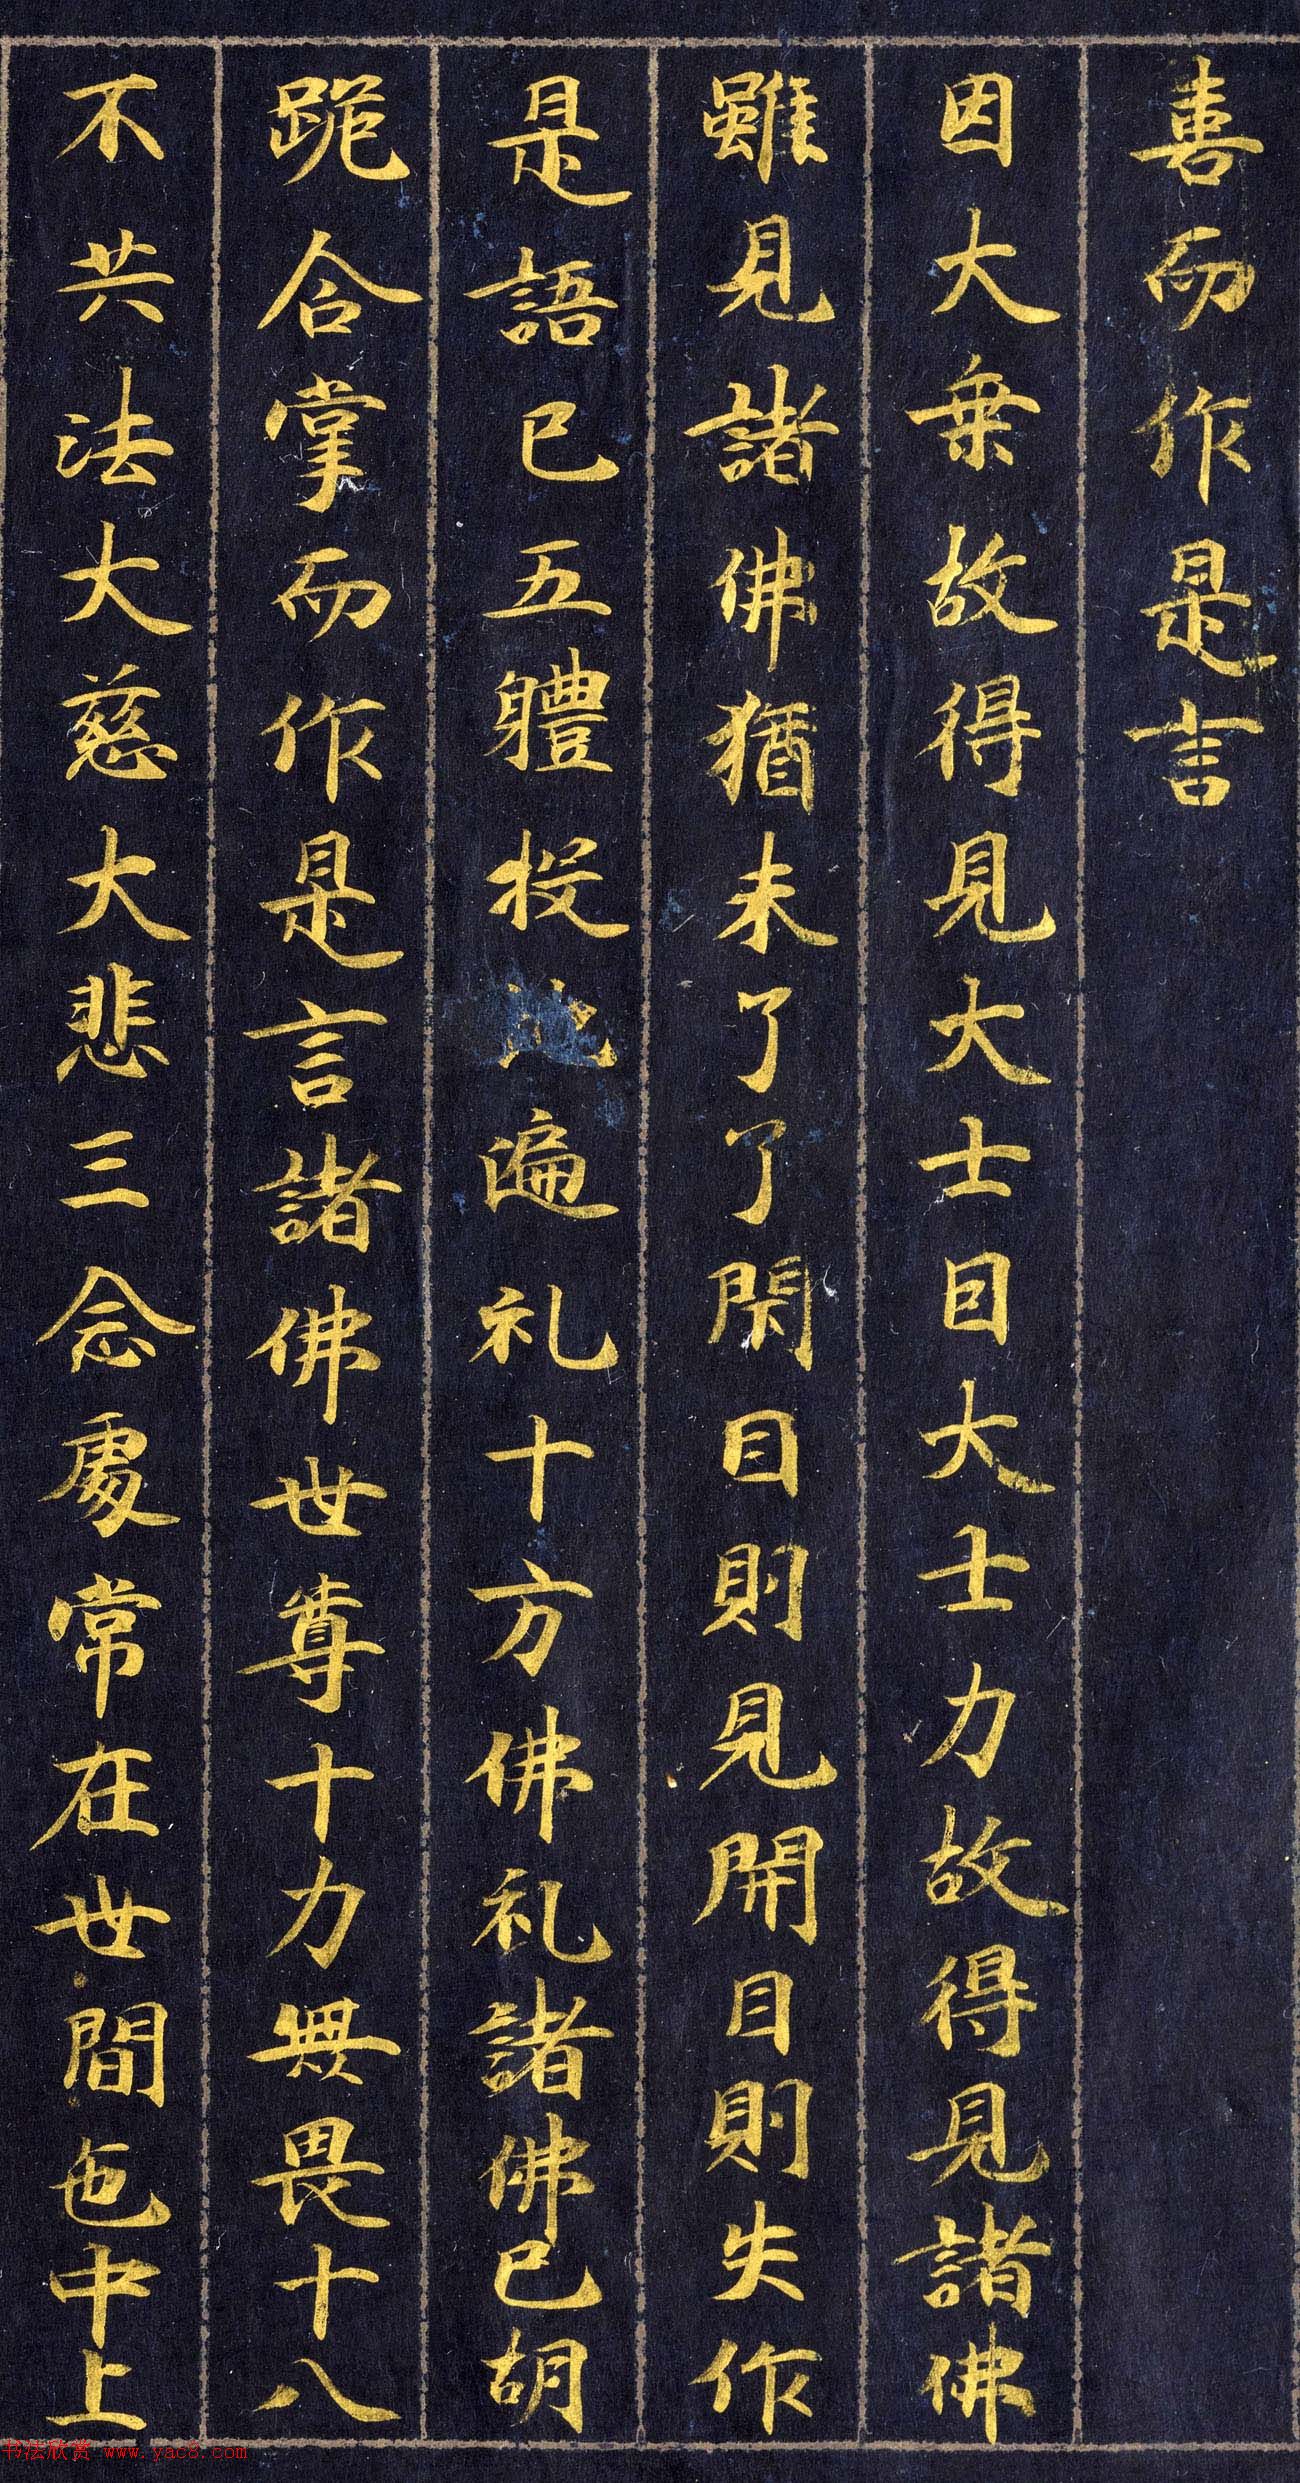 喜而作是言
因大乗故得見大士因大士力故得見諸佛
雖見諸佛猶未了了閇目則見開目則失作
是語已五體投遍礼十方佛礼諸佛已胡
跪合掌而作是言諸佛世尊十力無畏十八
不共法大慈大悲三念處常在世間色中上
书法欣赏 www.yac8.com